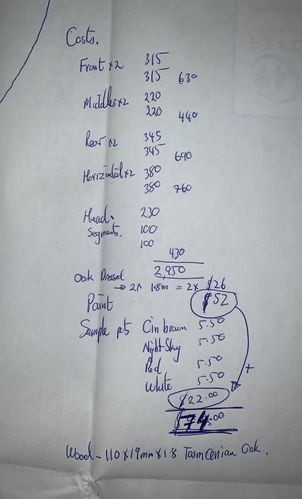 Costs.
Front x2 315
315 630
Middles x2 220
220 440
Rear x2 345
345 690
Horizontal x2 380
380 760
Head. 230
Segments. 100
100
430
2,950
Oak Dressed
→ 2x 1.8m = 2x $26
$52
Paint
Sample pots Cin brown 5.50
Night Sky 5.50
Red 5.50
White 5.50
+
$22.00
$74.00
Wood - 110 x 19mm x 1.8 Tasmanian Oak.